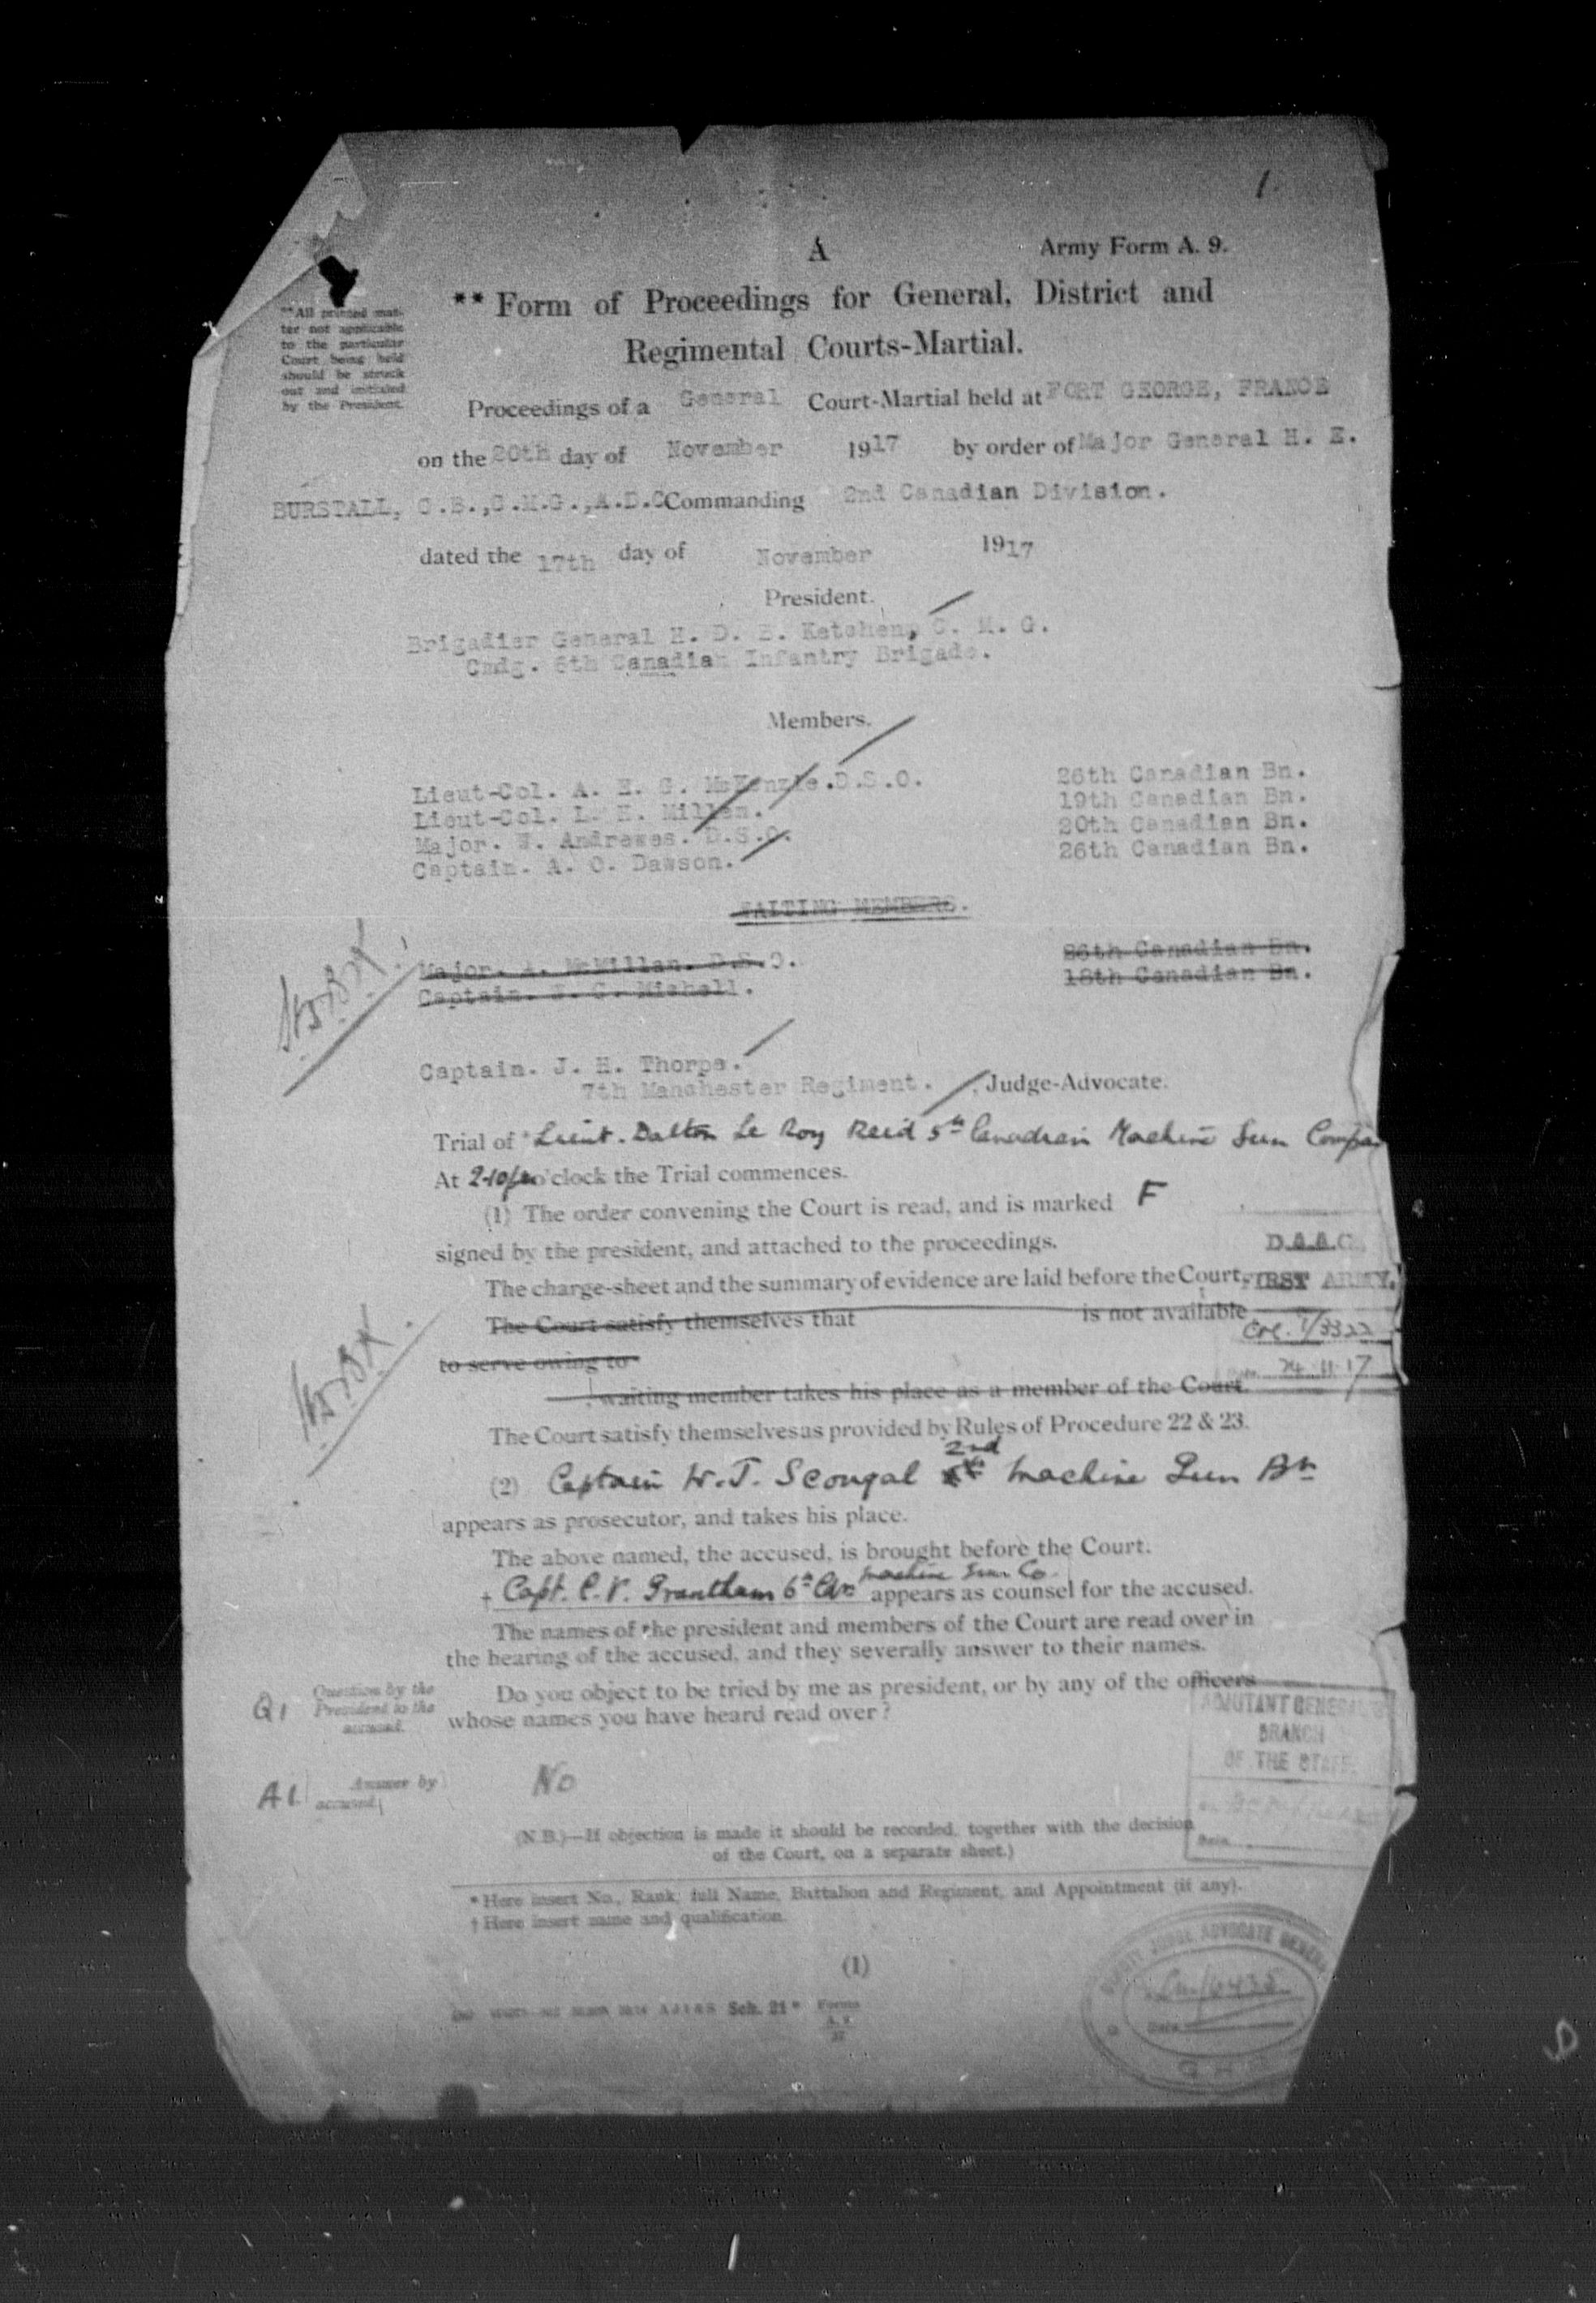 1.
A
Army Form A. 9.
** Form of Proceedings for General, District and
Regimental Courts-Martial.
**All printed mat-
ter not applicable
to the particular
Court being held
should be struck
out and initialed
by the President.
Proceedings of a General Court-Martial held at FORT GEORGE, FRANCE
on the 20th day of November 1917 by order of Major General H. E.
BURSTALL, C.B.,C.M.G.,A.D.C Commanding 2nd Canadian Division.
dated the 17th day of November 1917
President.
Brigadier General H. D. B. Ketchen, C. M. G.
Cmdg. 6th Canadian Infantry Brigade.
Members.
Lieut-Col. A. E. G. McKenzie.D.S.O. 26th Canadian Bn.
Lieut-Col. L. H. Millen. 19th Canadian Bn.
Major. W. Andrewes. D.S.O. 20th Canadian Bn.
Captain. A. O. Dawson. 26th Canadian Bn.
WAITING MEMBERS.
Major. A. McMillan. D.S.O. 26th Canadian Bn.
Captain. W. G. Michell. 18th Canadian Bn.
Captain. J. H. Thorpe.
7th Manchester Regiment. Judge-Advocate.
Trial of * Lieut. Dalton Le Roy Reid 5th Canadian Machine Gun Compa
At 2-10 pm o'clock the Trial commences.
(1) The order convening the Court is read, and is marked F
signed by the president, and attached to the proceedings.
D.A.A.G.
The charge-sheet and the summary of evidence are laid before the Court.
FIRST ARMY.
The Court satisfy themselves that is not available
to serve owing to
24.11.17
waiting member takes his place as a member of the Court.
The Court satisfy themselves as provided by Rules of Procedure 22 & 23.
(2) Captain W. J. Scougal 2nd Machine Gun Bn
appears as prosecutor, and takes his place.
The above named, the accused, is brought before the Court.
† Capt. C. V. Grantham 6th Cdn Machine Gun Co. appears as counsel for the accused.
The names of the president and members of the Court are read over in
the hearing of the accused, and they severally answer to their names.
Q1 Question by the
President to the
accused.
Do you object to be tried by me as president, or by any of the officers
whose names you have heard read over?
ADJUTANT GENERAL'S
BRANCH
OF THE STAFF.
A1. Answer by
accused.
No
(N.B.)—If objection is made it should be recorded, together with the decision
of the Court, on a separate sheet.)
Date
* Here insert No., Rank, full Name, Battalion and Regiment, and Appointment (if any).
† Here insert name and qualification.
(1)
Sch. 21* Forms
A. 9
DEPUTY JUDGE ADVOCATE GENERAL
Date
G H Q